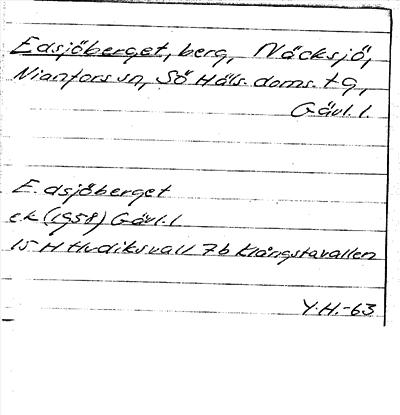 Edsjöberget, berg, Näcksjö,
Nianfors sn, Sö Häls. doms. tg,
Gävl. l.
Edsjöberget
ek (1958) Gävl. l
15 H Hudiksvall 7b Klångstavallen
Y.H.-63